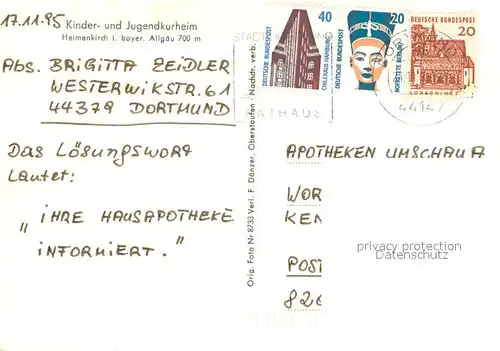 17.11.95
Kinder- und Jugendkurheim
Heimenkirch i. bayer. Allgäu 700 m
Abs. BRIGITTA ZEIDLER
WESTERWIKSTR. 61
44379 DORTMUND
DAS LÖSUNGSWORT
LAUTET:
„IHRE HAUSAPOTHEKE
INFORMIERT."
Orig. Foto Nr 8733 Verl. F. Dänzer, Oberstaufen · Nachdr. verb.
40
DEUTSCHE BUNDESPOST
CHILEHAUS HAMBURG
20
DEUTSCHE BUNDESPOST
NOFRETETE BERLIN
DEUTSCHE BUNDESPOST
20
LORSCH/HESSEN
44147
APOTHEKEN UMSCHAU A
WOR
KEN
privacy protection
Datenschutz
POST
826